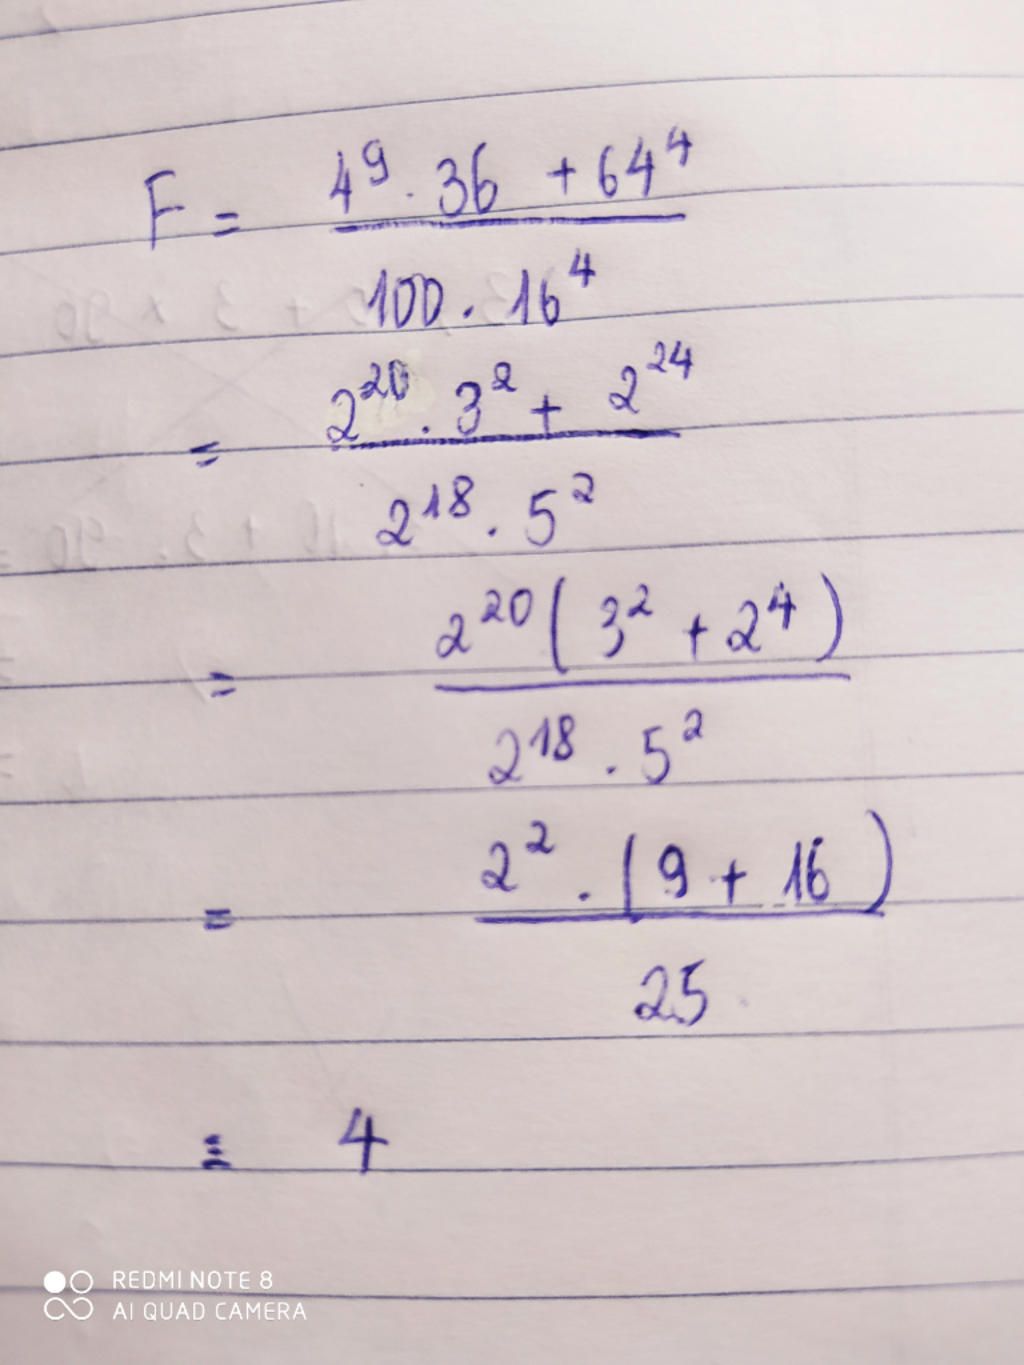 F = (4^9 . 36 + 64^4) / (100 . 16^4)
= (2^20 . 3^2 + 2^24) / (2^18 . 5^2)
= (2^20 (3^2 + 2^4)) / (2^18 . 5^2)
= (2^2 . (9 + 16)) / 25
= 4
REDMI NOTE 8
AI QUAD CAMERA